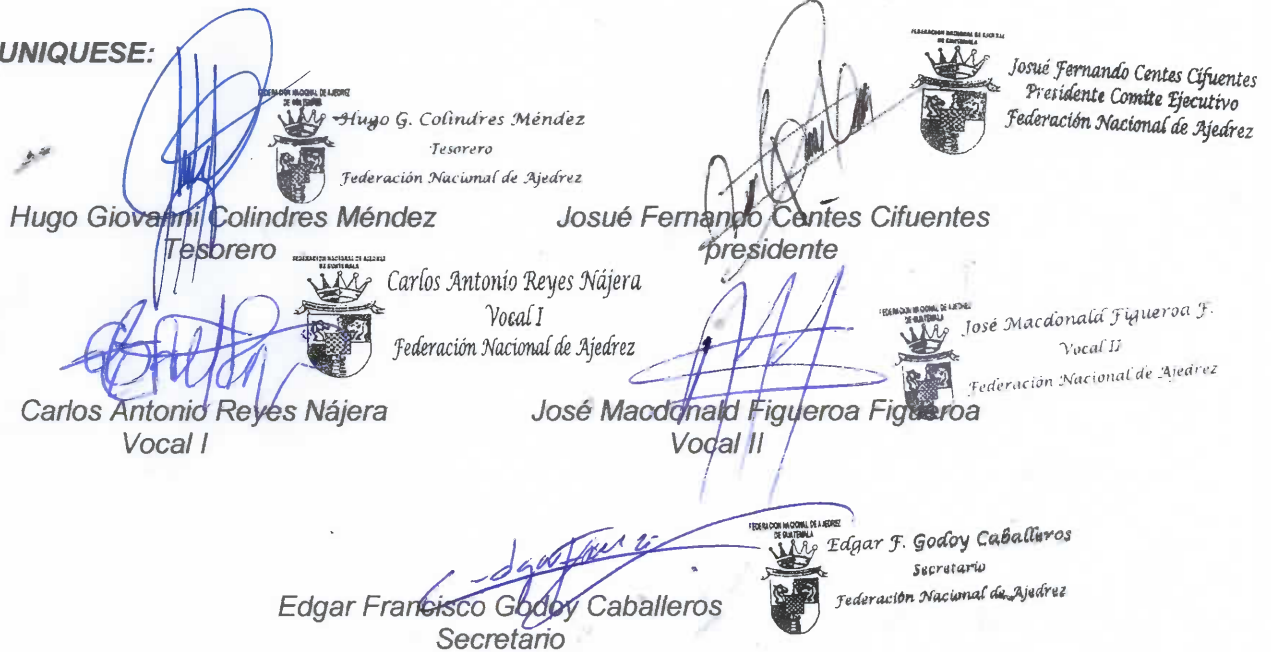 UNIQUESE:
FEDERACION NACIONAL DE AJEDREZ
DE GUATEMALA
Hugo G. Colindres Méndez
Tesorero
Federación Nacional de Ajedrez
Hugo Giovanni Colindres Méndez
Tesorero
FEDERACION NACIONAL DE AJEDREZ
DE GUATEMALA
Josué Fernando Centes Cifuentes
Presidente Comite Ejecutivo
Federación Nacional de Ajedrez
Josué Fernando Centes Cifuentes
presidente
FEDERACION NACIONAL DE AJEDREZ
DE GUATEMALA
Carlos Antonio Reyes Nájera
Vocal I
Federación Nacional de Ajedrez
Carlos Antonio Reyes Nájera
Vocal I
FEDERACION NACIONAL DE AJEDREZ
DE GUATEMALA
José Macdonald Figueroa F.
Vocal II
Federación Nacional de Ajedrez
José Macdonald Figueroa Figueroa
Vocal II
FEDERACION NACIONAL DE AJEDREZ
DE GUATEMALA
Edgar F. Godoy Caballeros
Secretario
Federación Nacional de Ajedrez
Edgar Francisco Godoy Caballeros
Secretario